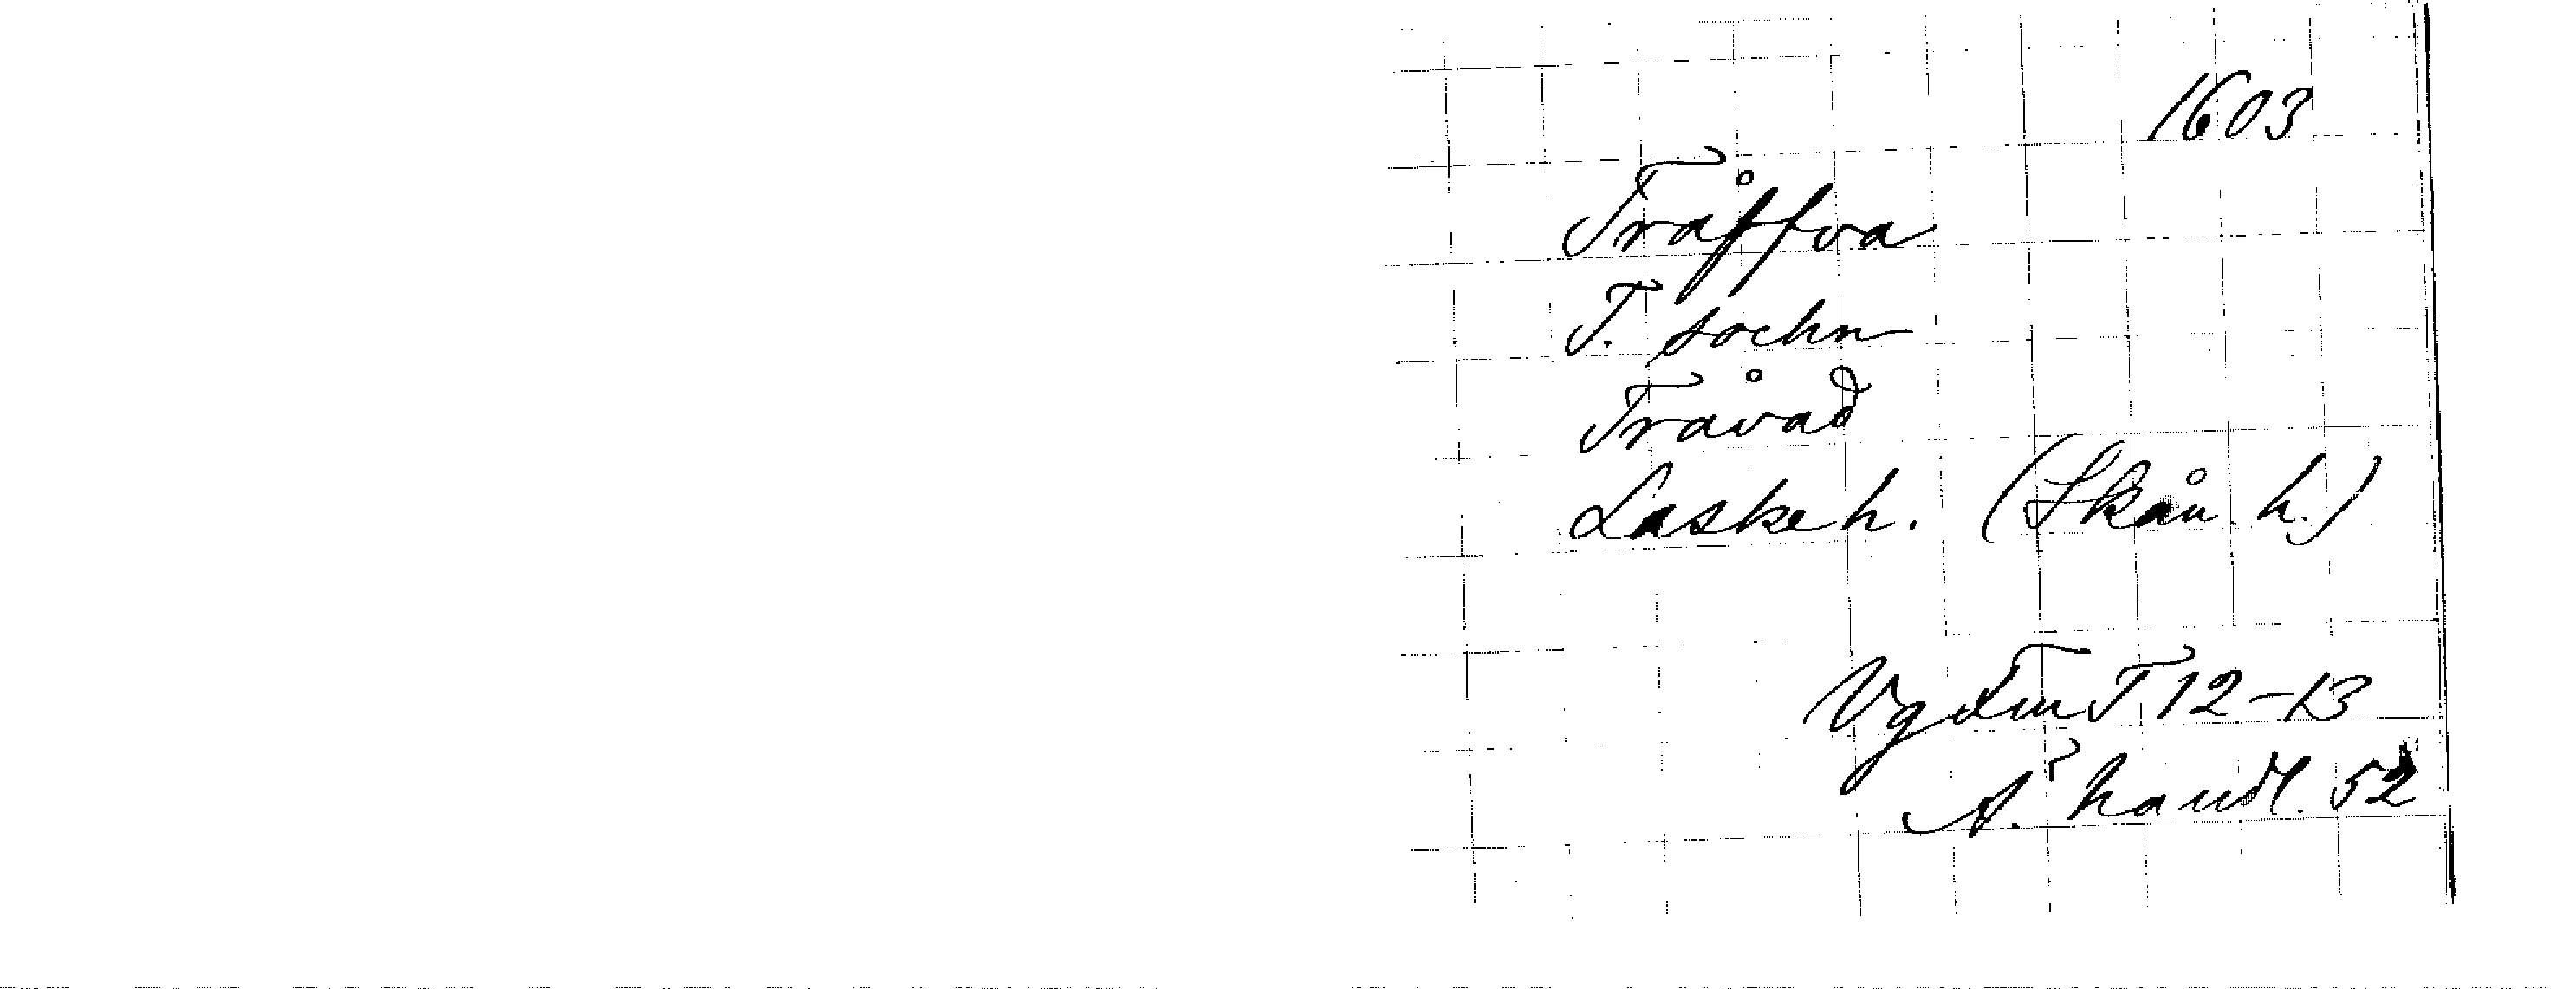 1603
Tråffva
T. sochn
Tråvad
Laske h. (Skån. h.)
Vg T 12-13
A. handl. 52